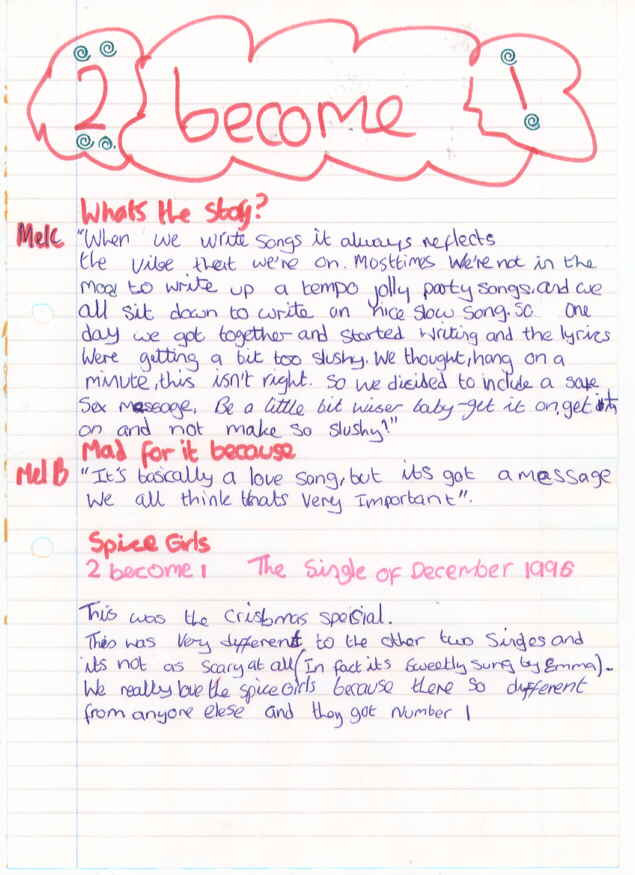 2 become 1
Whats the story?
Mel C "When we write songs it always reflects
the vibe that we're on. Mosttimes we're not in the
mood to write up a tempo jolly party songs. and we
all sit down to write an nice slow song. So one
day we got together and started writing and the lyrics
were getting a bit too slushy. We thought, hang on a
minute, this isn't right. So we dicided to include a safe
Sex message. Be a little bit wiser baby-get it on, get it
on and not make so slushy!"
Mad for it because
Mel B "It's basically a love song, but its got a message
we all think thats very important".
Spice Girls
2 become 1 The Single of December 1996
This was the Cristmas special.
This was very different to the other two singles and
its not as scary at all (In fact its sweetly sung by Emma).
We really love the spice Girls because there so different
from anyone elese and they got number 1